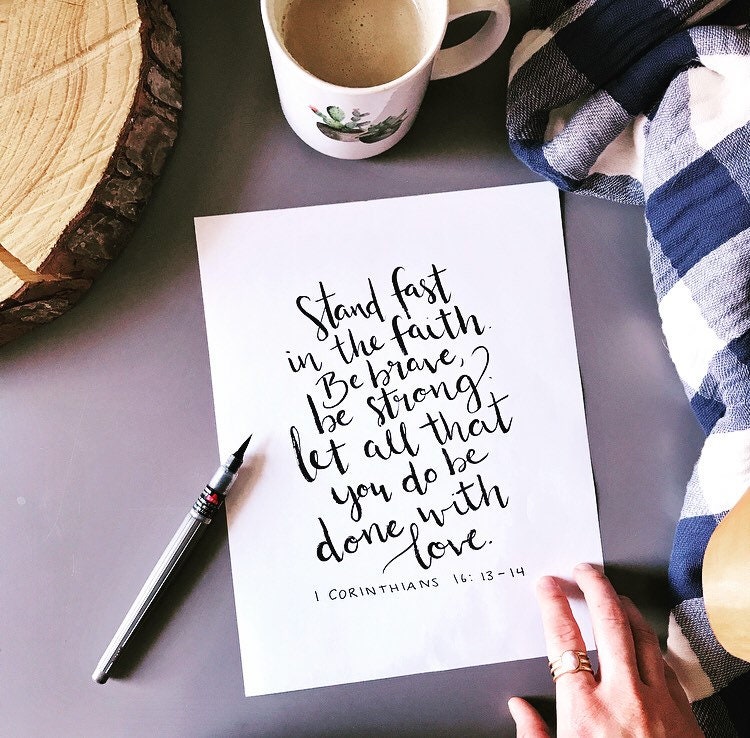 Stand fast
in the faith.
Be brave,
be strong.
let all that
you do be
done with
love.
1 CORINTHIANS 16:13-14